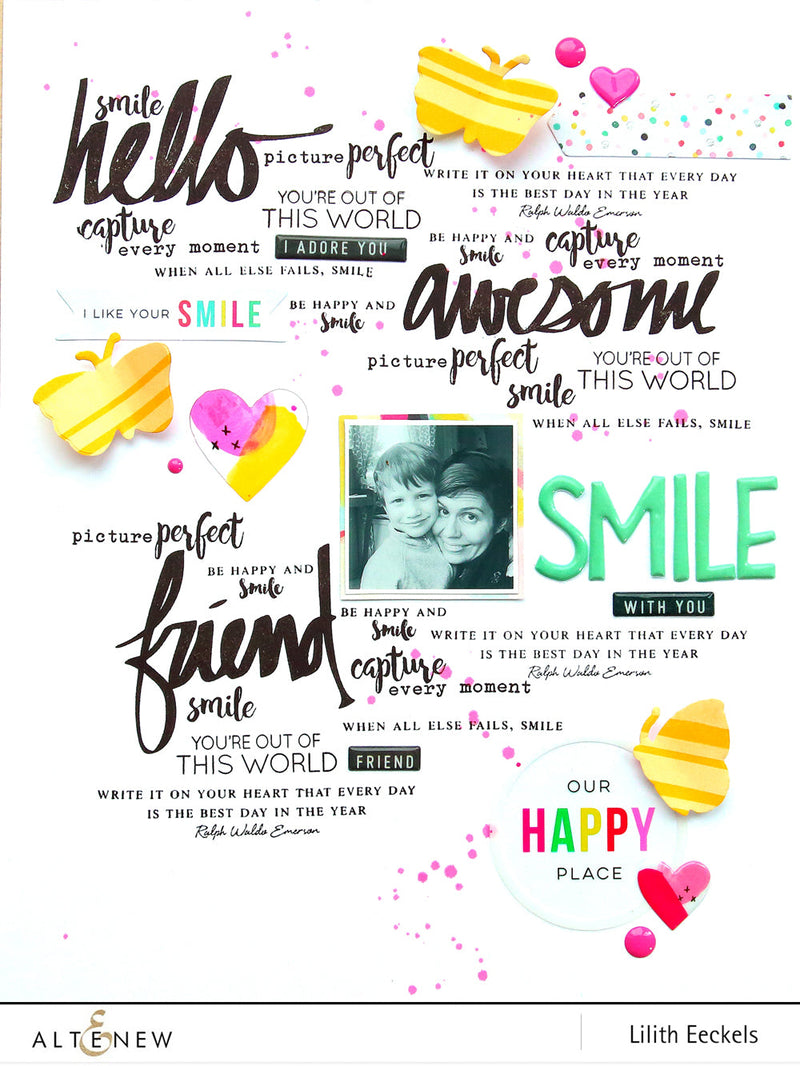 smile
hello
picture perfect
YOU'RE OUT OF
THIS WORLD
capture
every moment
I ADORE YOU
WHEN ALL ELSE FAILS, SMILE
WRITE IT ON YOUR HEART THAT EVERY DAY
IS THE BEST DAY IN THE YEAR
Ralph Waldo Emerson
BE HAPPY AND
smile
capture
every moment
I LIKE YOUR SMILE
BE HAPPY AND
smile
awesome
picture perfect
smile
YOU'RE OUT OF
THIS WORLD
WHEN ALL ELSE FAILS, SMILE
SMILE
WITH YOU
picture perfect
BE HAPPY AND
smile
friend
smile
YOU'RE OUT OF
THIS WORLD
BE HAPPY AND
smile
capture
every moment
WRITE IT ON YOUR HEART THAT EVERY DAY
IS THE BEST DAY IN THE YEAR
Ralph Waldo Emerson
WHEN ALL ELSE FAILS, SMILE
FRIEND
WRITE IT ON YOUR HEART THAT EVERY DAY
IS THE BEST DAY IN THE YEAR
Ralph Waldo Emerson
OUR
HAPPY
PLACE
ALTENEW
Lilith Eeckels